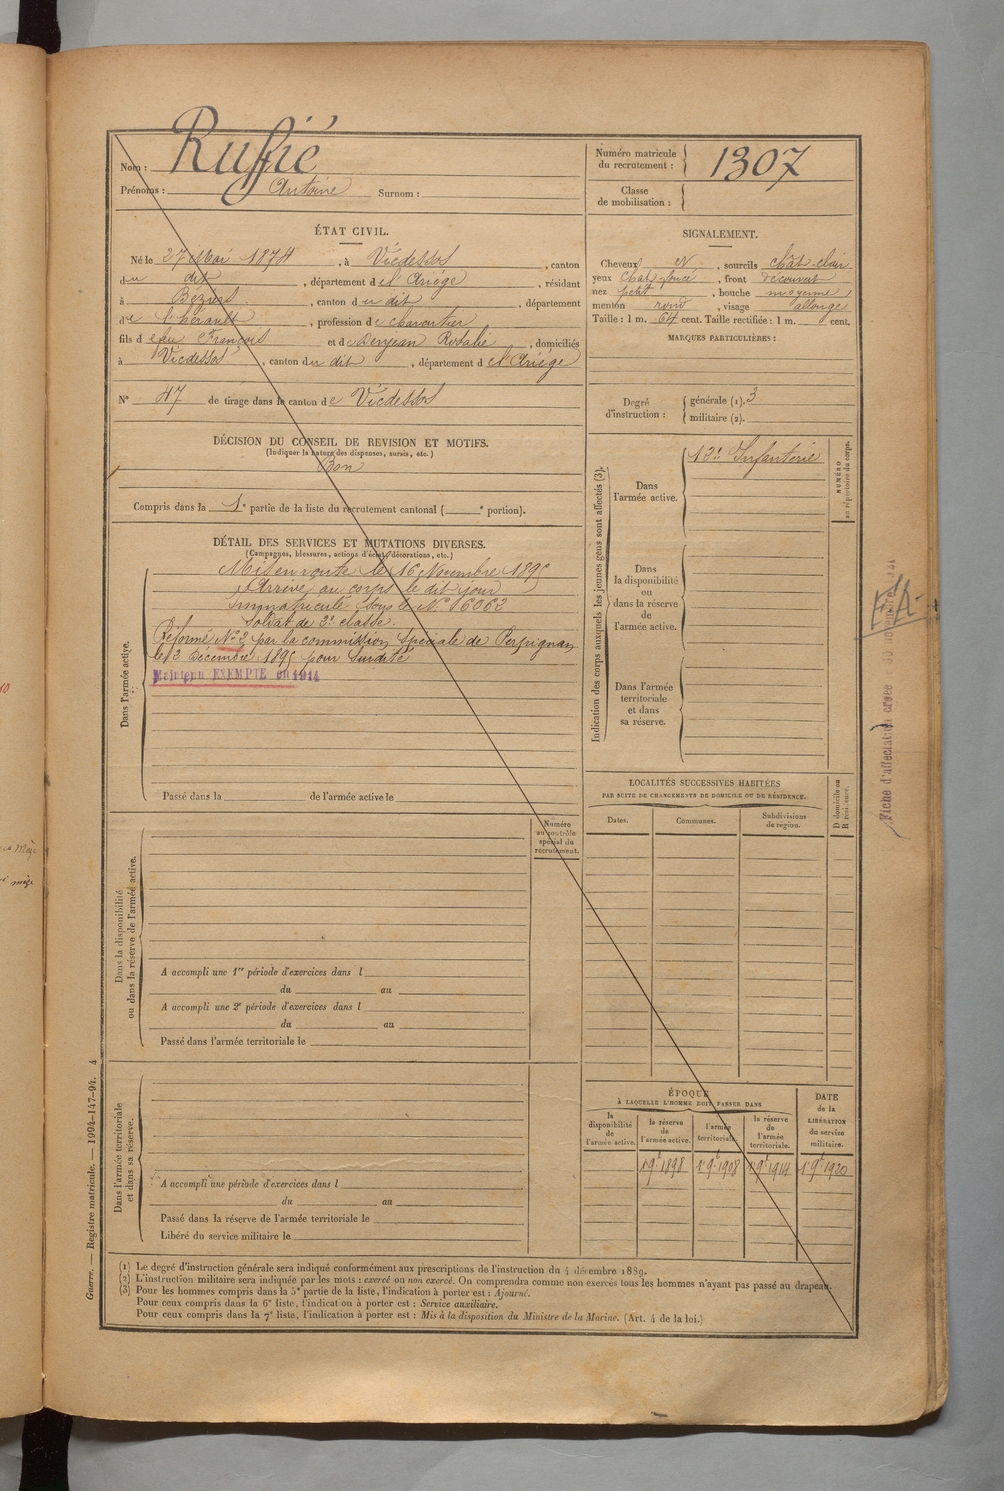 Nom : Ruffié
Prénoms : Antoine Surnom :
Numéro matricule du recrutement : 1307
Classe de mobilisation :
ÉTAT CIVIL.
Né le 27 Mai 1874, à Vicdessos, canton
du dit, département de l'Ariège, résidant
à Béziers, canton du dit, département
de l'hérault, profession de charcutier
fils d eeu François et de Benjean Rosalie, domiciliés
à Vicdessos, canton du dit, département de l'Ariège
N° 47 de tirage dans le canton de Vicdessos
SIGNALEMENT.
Cheveux N, sourcils chât-clair
yeux Chat-foncé, front découvert
nez petit, bouche moyenne,
menton rond, visage allongé
Taille : 1 m. 64 cent. Taille rectifiée : 1 m. cent.
MARQUES PARTICULIÈRES :
Degré d'instruction :
générale (1). 3
militaire (2).
DÉCISION DU CONSEIL DE REVISION ET MOTIFS.
(Indiquer la nature des dispenses, sursis, etc.)
Bon
Compris dans la 1e partie de la liste du recrutement cantonal ( e portion).
DÉTAIL DES SERVICES ET MUTATIONS DIVERSES.
(Campagnes, blessures, actions d'éclat, décorations, etc.)
Dans l'armée active.
Mis en route le 16 Novembre 1895
Arrivé au corps le dit jour
Immatriculé sous le N° 16062
Soldat de 2e classe.
Réformé N° 2 par la commission spéciale de Perpignan
le 13 Décembre 1895 pour surdité
Maintenu EXEMPTÉ en 1914
Passé dans la de l'armée active le
Indication des corps auxquels les jeunes gens sont affectés (3).
NUMÉRO au répertoire du corps.
Dans l'armée active.
12e Infanterie
Dans la disponibilité ou dans la réserve de l'armée active.
Dans l'armée territoriale et dans sa réserve.
FA
Fiche d'affectation créée le 30 novembre 1921
LOCALITÉS SUCCESSIVES HABITÉES
PAR SUITE DE CHANGEMENTS DE DOMICILE OU DE RÉSIDENCE.
Dates.
Communes.
Subdivisions de région.
D domicile ou R résidence.
Numéro au contrôle spécial du recrutement.
Dans la disponibilité ou dans la réserve de l'armée active.
A accompli une 1re période d'exercices dans l
du au
A accompli une 2e période d'exercices dans l
du au
Passé dans l'armée territoriale le
Dans l'armée territoriale et dans sa réserve.
A accompli une période d'exercices dans l
du au
Passé dans la réserve de l'armée territoriale le
Libéré du service militaire le
ÉPOQUE
À LAQUELLE L'HOMME DOIT PASSER DANS
la disponibilité de l'armée active.
la réserve de l'armée active.
l'armée territoriale.
la réserve de l'armée territoriale.
DATE de la LIBÉRATION du service militaire.
1 9e 1898
1 9e 1908
1 9e 1914
1 9e 1920
(1) Le degré d'instruction générale sera indiqué conformément aux prescriptions de l'instruction du 4 décembre 1889.
(2) L'instruction militaire sera indiquée par les mots : exercé ou non exercé. On comprendra comme non exercés tous les hommes n'ayant pas passé au drapeau.
(3) Pour les hommes compris dans la 5e partie de la liste, l'indication à porter est : Ajourné.
Pour ceux compris dans la 6e liste, l'indication à porter est : Service auxiliaire.
Pour ceux compris dans la 7e liste, l'indication à porter est : Mis à la disposition du Ministre de la Marine. (Art. 4 de la loi.)
Guerre. — Registre matricule. — 1994-147-94. 4